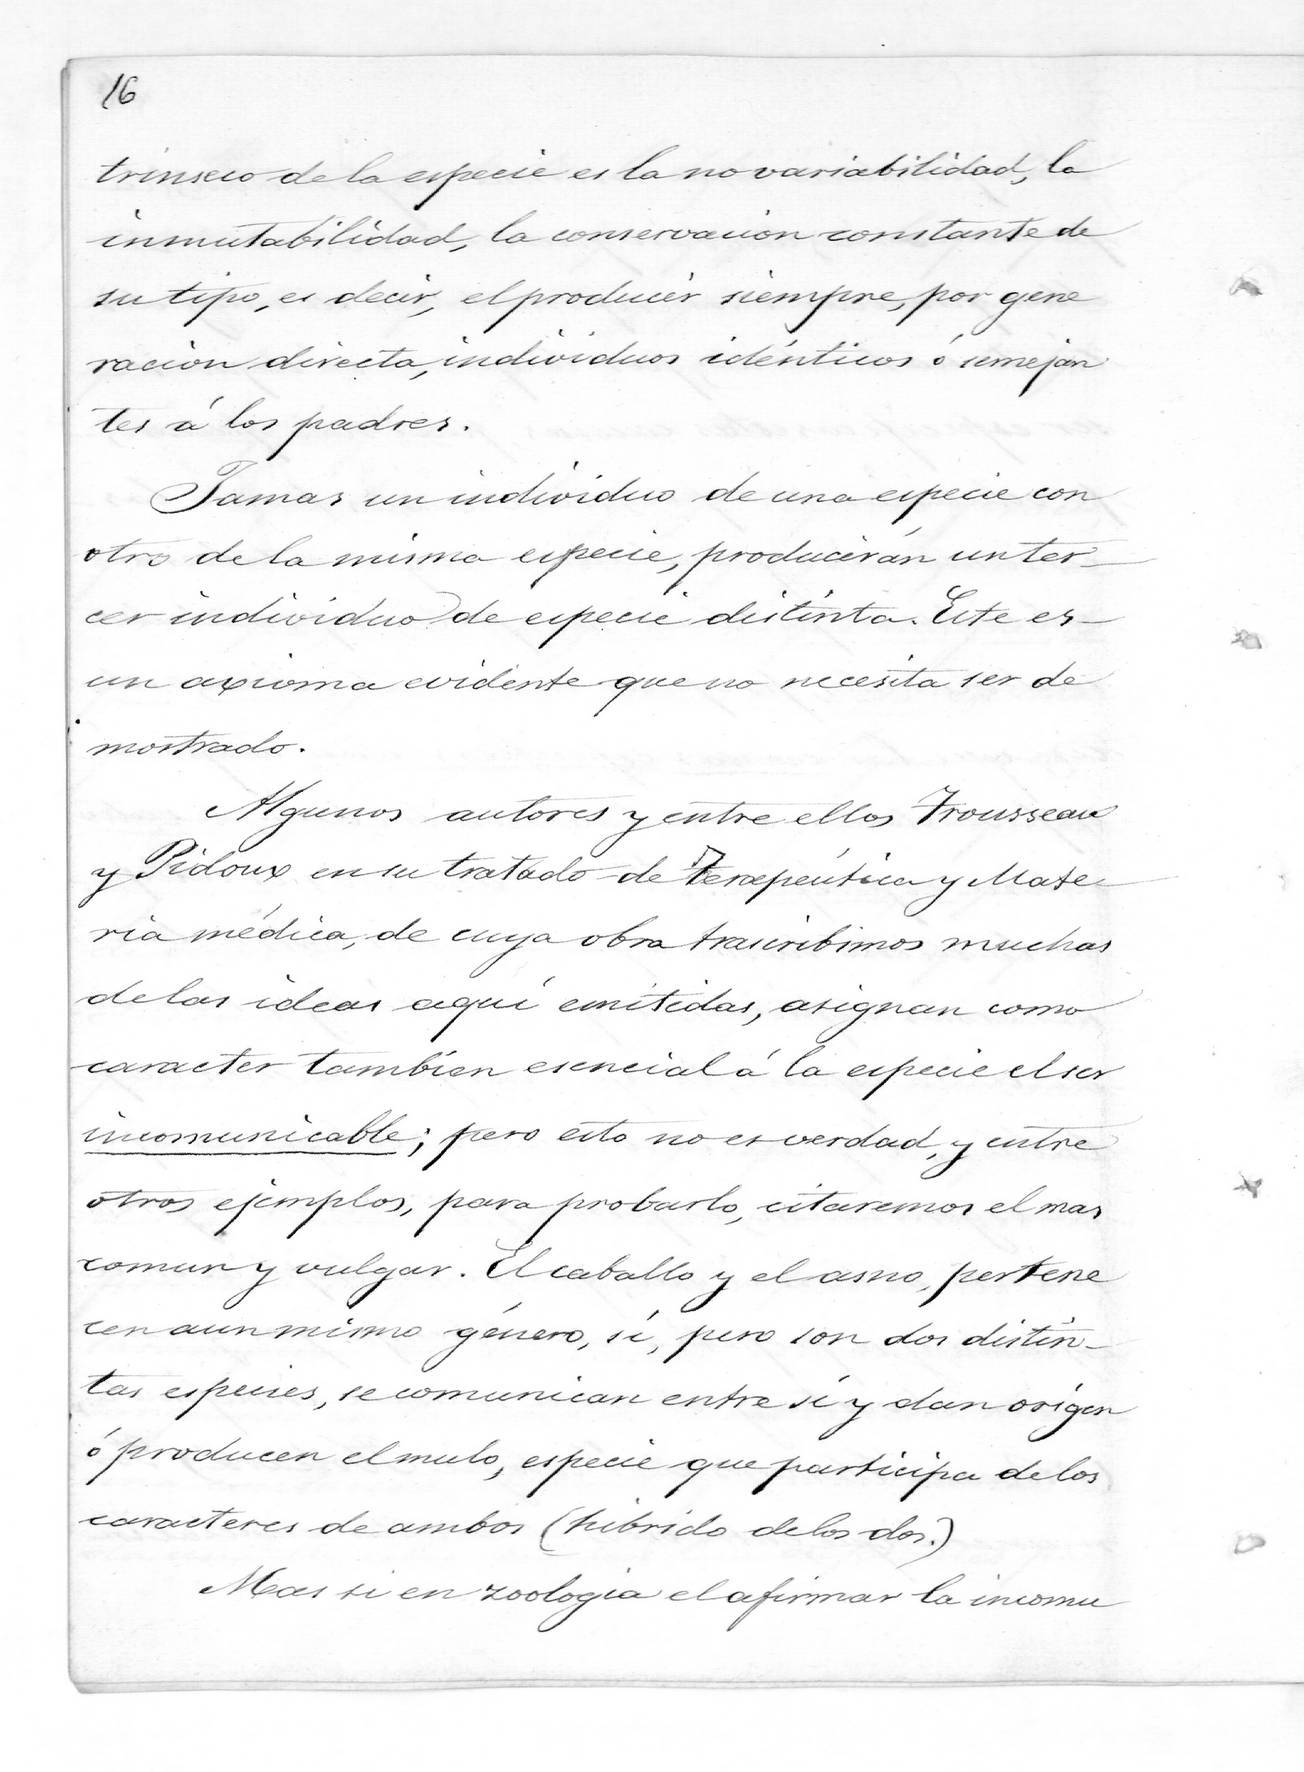 16
trinseco de la especie es la no variabilidad, la
inmutabilidad, la conservacion constante de
su tipo, es decir, el producir siempre, por gene
racion directa, individuos idénticos ó semejan
tes á los padres.
Jamas un individuo de una especie con
otro de la misma especie, producirán un ter-
cer individuo de especie distinta. Este es
un axioma evidente que no necesita ser de
mostrado.
Algunos autores y entre ellos Trousseau
y Pidoux en su tratado de Terapéutica y Mate-
ria médica, de cuya obra trascribimos muchas
de las ideas aquí emitidas, asignan como
caracter tambien esencial á la especie el ser
incomunicable; pero esto no es verdad, y entre
otros ejemplos, para probarlo, citaremos el mas
comun y vulgar. El caballo y el asno, pertene
cen a un mismo género, sí, pero son dos distin-
tas especies, se comunican entre sí y dan orígen
ó producen el mulo, especie que participa de los
caracteres de ambos (hibrido de los dos.)
Mas si en zoologia el afirmar la incomu